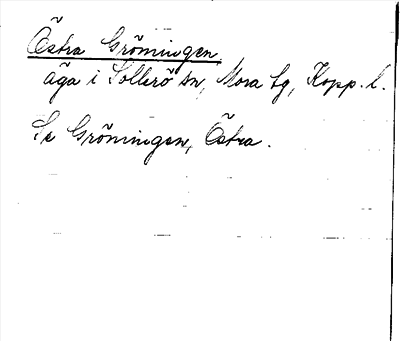 Östra Gröningen,
äga i Sollerö sn, Mora tg, Kopp. l.
Se Gröningen, Östra.